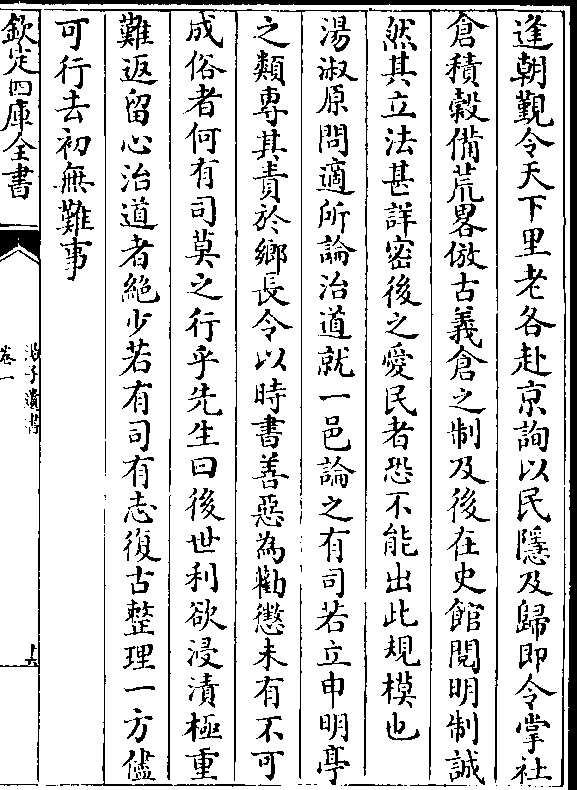 逢朝覲令天下里老各赴京詢以民隱及歸即令掌社
倉積穀備荒畧倣古義倉之制及後在史館閱明制誠
然其立法甚詳密後之愛民者恐不能出此規模也
湯淑原問適所論治道就一邑論之有司若立申明亭
之類專其責於鄉長令以時書善惡為勸懲未有不可
成俗者何有司莫之行乎先生曰後世利欲浸漬極重
難返留心治道者絕少若有司有志復古整理一方儘
可行去初無難事
欽定四庫全書
子遺書
卷一